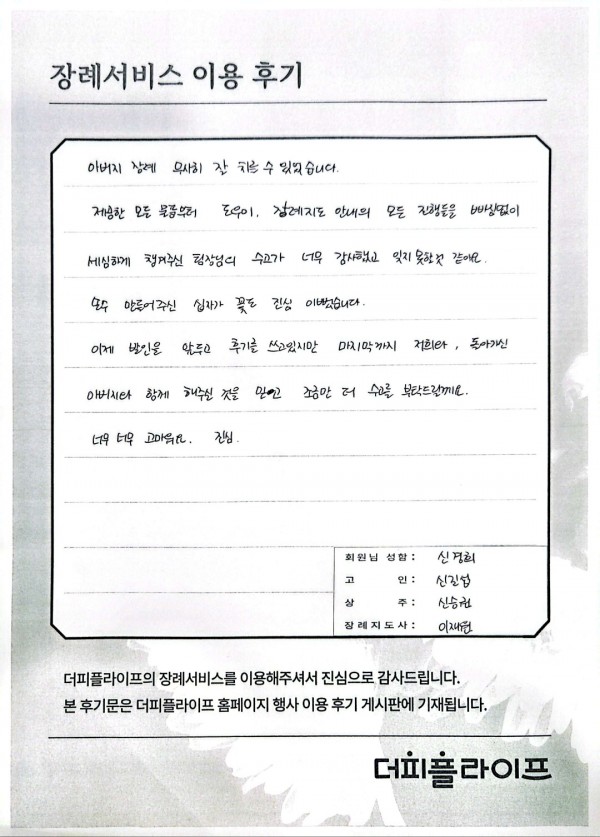 장례서비스 이용 후기
아버지 장례 무사히 잘 치를 수 있었습니다.
제공한 모든 물품부터 도우미, 장례지도 안내의 모든 진행들을 빠짐없이
세심하게 챙겨주신 팀장님의 수고가 너무 감사했고 잊지 못할것 같아요.
손수 만들어주신 십자가 꽃도 진심 이뻤습니다.
이제 발인을 앞두고 후기를 쓰고있지만 마지막까지 저희랑, 돌아가신
아버지랑 함께 해주실 것을 믿고 조금만 더 수고를 부탁드릴께요.
너무 너무 고마워요. 진심.
회원님 성함 : 신경희
고 인 : 신진섭
상 주 : 신승헌
장례지도사 : 이재현
더피플라이프의 장례서비스를 이용해주셔서 진심으로 감사드립니다.
본 후기문은 더피플라이프 홈페이지 행사 이용 후기 게시판에 기재됩니다.
더피플라이프